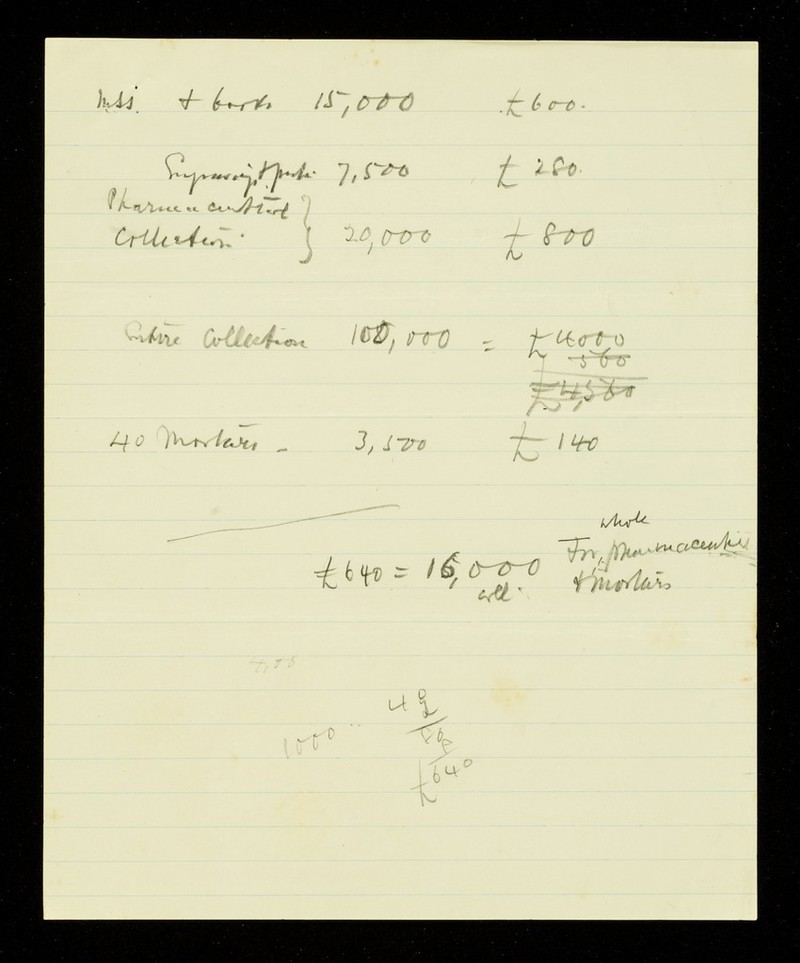 Mss. & books 15,000 £600.
Engravings & 7,500 £ 280.
Pharmaceutical
Collection. 20,000 £ 800
Entire Collection 100,000 = £4000
560
£4,560
40 Mortars - 3,500 £ 140
whole
£640 = 16,000 For pharmaceutics
coll. & Mortars
1000 .. 40
£640